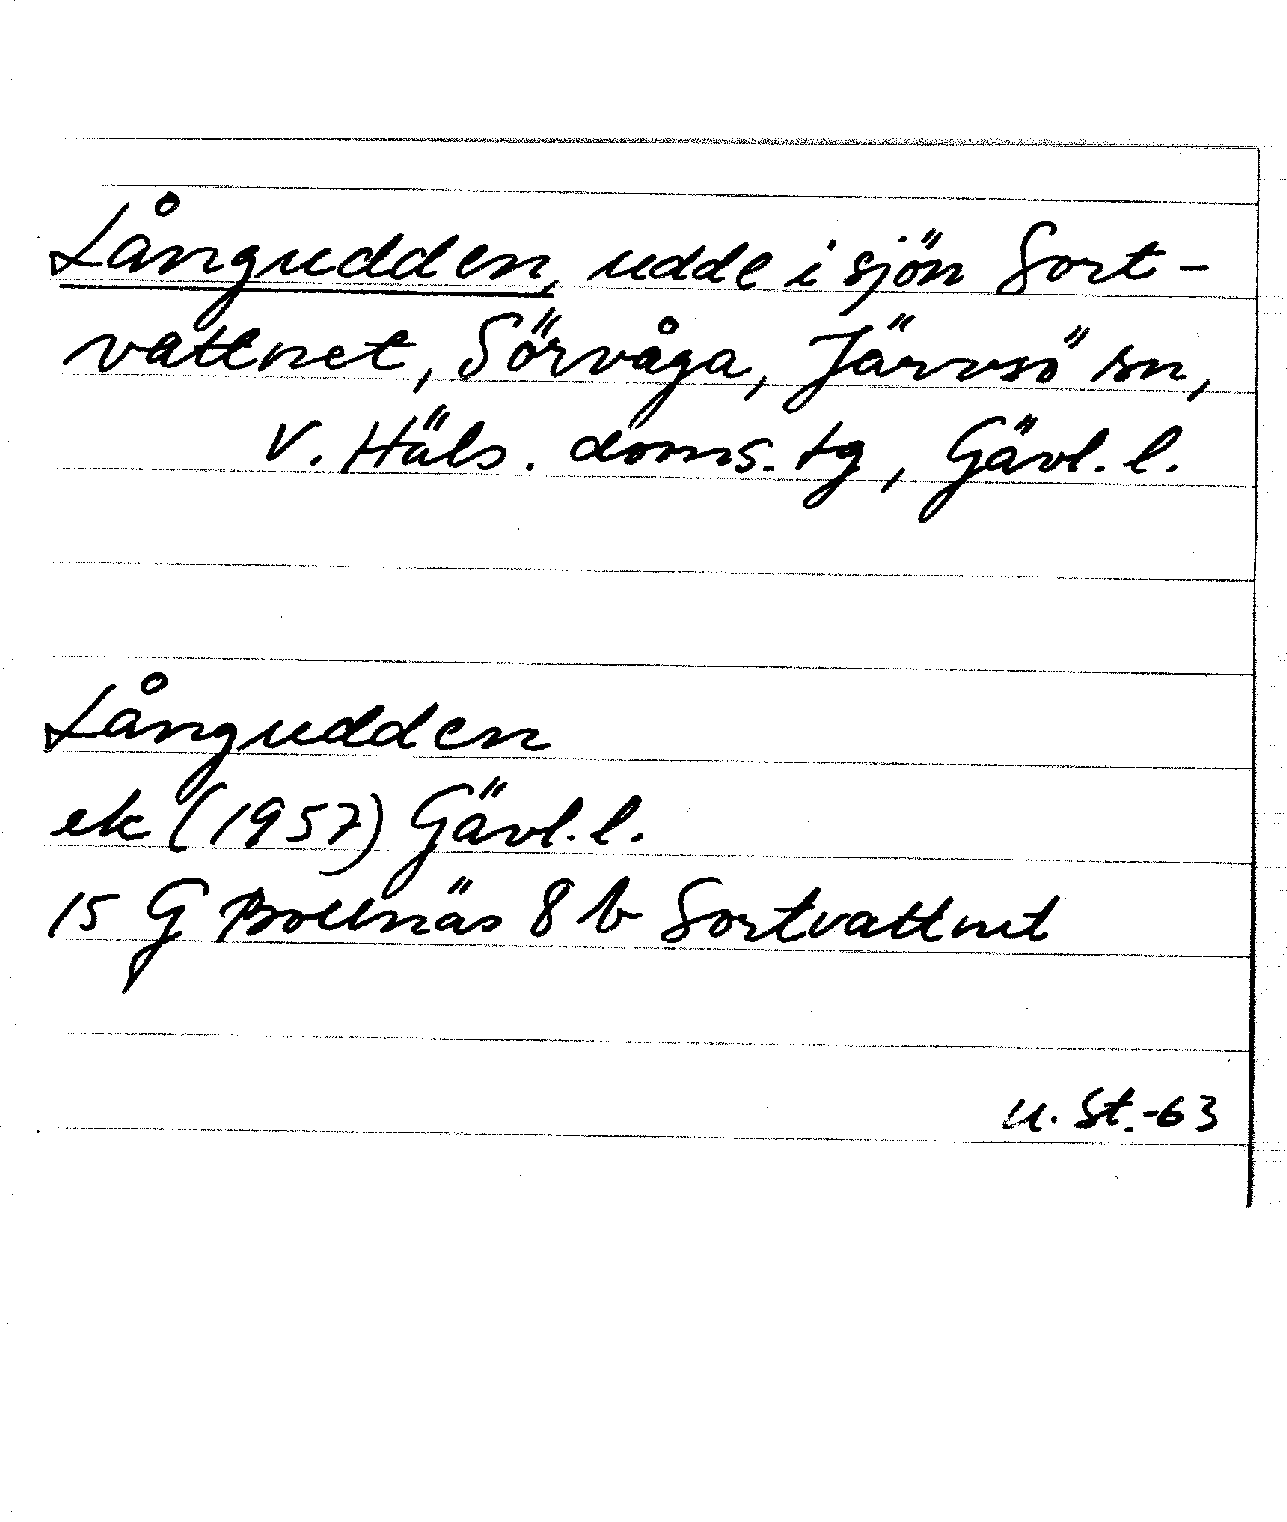 Långudden, udde i sjön Sort-
vattnet, Sörvåga, Järvsö sn,
V. Häls. doms. tg, Gävl. l.
Långudden
ek (1957) Gävl. l.
15 G Bollnäs 8 b Sortvattnet
U. St. -63